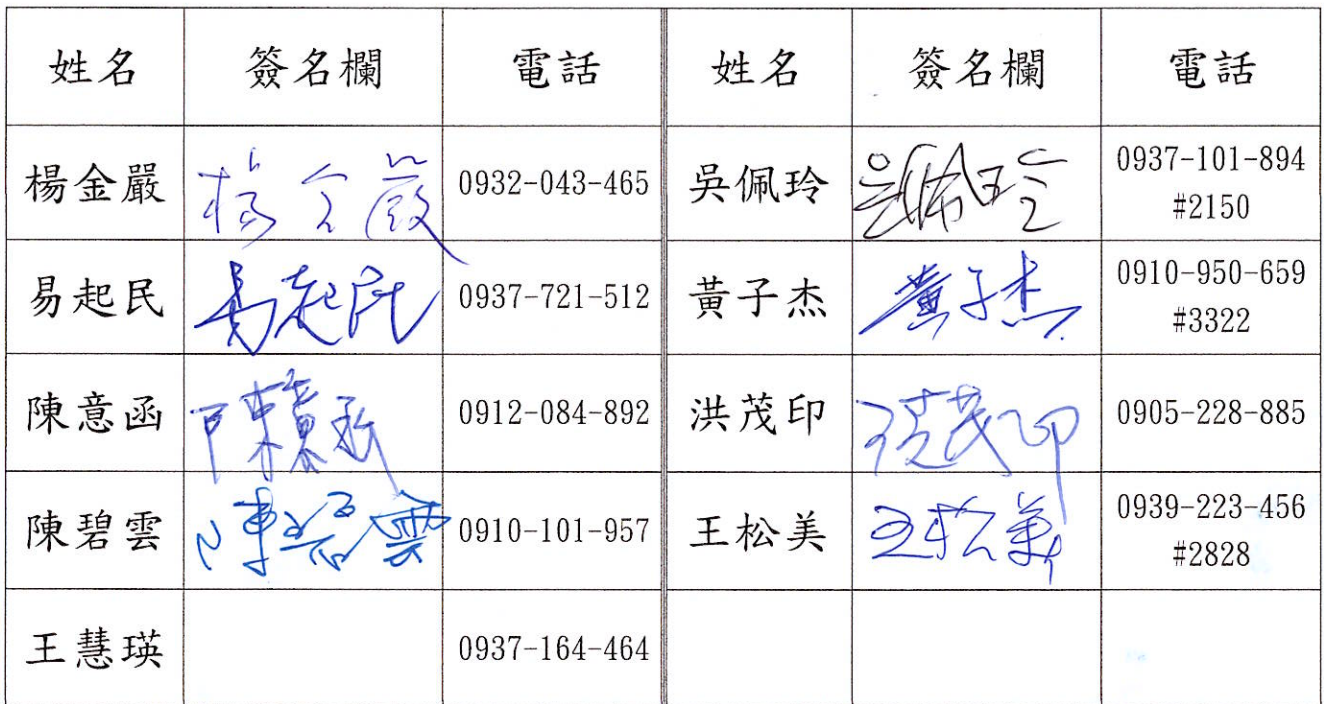 姓名 簽名欄 電話 姓名 簽名欄 電話
楊金嚴 楊金嚴 0932-043-465 吳佩玲 吳佩玲 0937-101-894
#2150
易起民 易起民 0937-721-512 黃子杰 黃子杰 0910-950-659
#3322
陳意函 陳意函 0912-084-892 洪茂印 洪茂印 0905-228-885
陳碧雲 陳碧雲 0910-101-957 王松美 王松美 0939-223-456
#2828
王慧瑛 0937-164-464